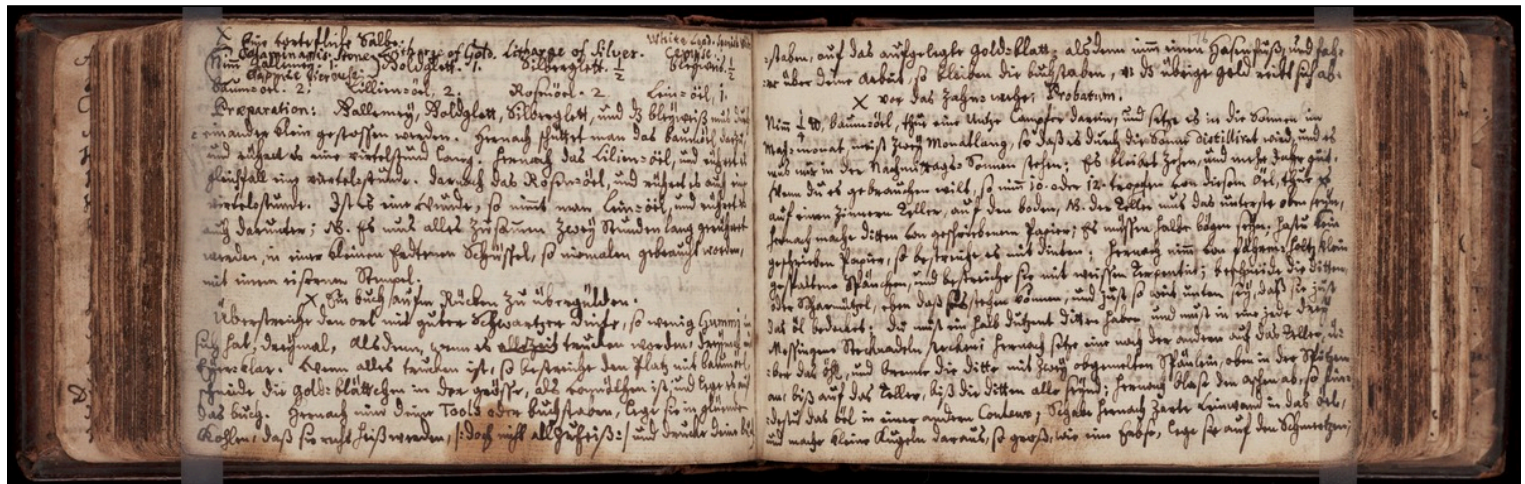 X Eine vortrefliche Salbe.
Calaminaris Stone Litharge of Gold. Litharge of Silver. White Lead.
Nim Gallmey. 1. Goldglett. 1. Silberglett. ½ Bleyweiß. ½
Baum=oel. 2. Lillien=oel. 2. Rosenöel. 2 Lein=öel, 1.
Preparation: Gallmey, Goldglett, Silberglett, und ds bleyweiß mus
einander klein gestossen werden. Hernach schüttet man das baumöel darzu,
und rühret es eine viertelstund lang. hernach das Lilien=öel, und rühret es
gleichfall eine viertelstunde. darnach das Rosen=öel, und rühret es auch ein
viertelstunde. Ist es eine wunde, so nimt man Lein=öil, und rühret es
auch darunter; NB. Es mus alles zusamen zwey Stunden lang gerühret
werden, in einer kleinen Erdternen Schüssel, so niemalen gebraucht worden,
mit einem eisernen Stempel.
X Ein buch auf'm Rücken zu übergülden.
Überstreiche den ort mit guter Schwartzer Dinte, so wenig Gummi in
sich hat, dreymal, alsdenn, wenn es trucken worden, dreymal mit
Eyer=klar. Wenn alles trucken ist, so bestreiche den Platz mit baumöel,
schneide die Gold=blättchen in der grösse, als vonnöthen ist, und lege es auf
das buch. Hernach nim deine Tools oder buchstaben, lege sie in glüende
Kohlen, daß sie recht heiß werden, /:doch nicht allzuheiß:/ und drucke deine buch
=staben, auf das aufgelegte Gold=blatt: alsdenn nim einen Hasenfuß, und fah=
=re über deine Arbeit, so bleiben die buchstaben, und ds übrige gold reibt sich ab.
X vor das Zahn=wehe; Probatum.
Nim ¼ lb, baum=öel, thue eine Untze Campfer darein, und setze es in die Sonnen im
May=monat, meist zwey Monatlang, so daß es durch die Sonne distillirt wird, und es
mus nur in der Nachmittags=Sonnen stehen; Es bleibet zehen, und mehr Jahr gut.
Wenn du es gebrauchen wilt, so nim 10. oder 12. tropfen von diesem Öel, thue es
auf einen Zinnern Teller, auf den boden, NB. der Teller mus das unterste oben seyn,
hernach mache ditten von geschriebenem Papier; Es müssen halbe bögen seyn; hastu kein
geschrieben Papier, so bestreiche es mit dinten; hernach nim von holtz klein
gespaltene Spänchen, und bestreiche sie mit weissen Terpentin; beschneide die ditten
oder Scharmützel, eben daß sie stehen können, und just so weit unten sey, daß sie just
das öl bedecket; du must ein halb dutzent ditten haben und must in eine jede drey
Messingene Stecknadeln stecken; hernach setze eine nach der andern auf das Teller ü=
=ber das öhl, und brenne die ditte mit zwey obgemelten Spänlein, oben in der Spitzen
an, biß auf das Teller, biß die ditten alle seynd; hernach blaß den aschen ab, so fin=
=destu das öel in einer andern Couleur; Schabe hernach zarte Leinwand in das öel,
und mache kleine Kugeln daraus, so groß, wie eine Erbse, lege sie auf den Schmertzen;